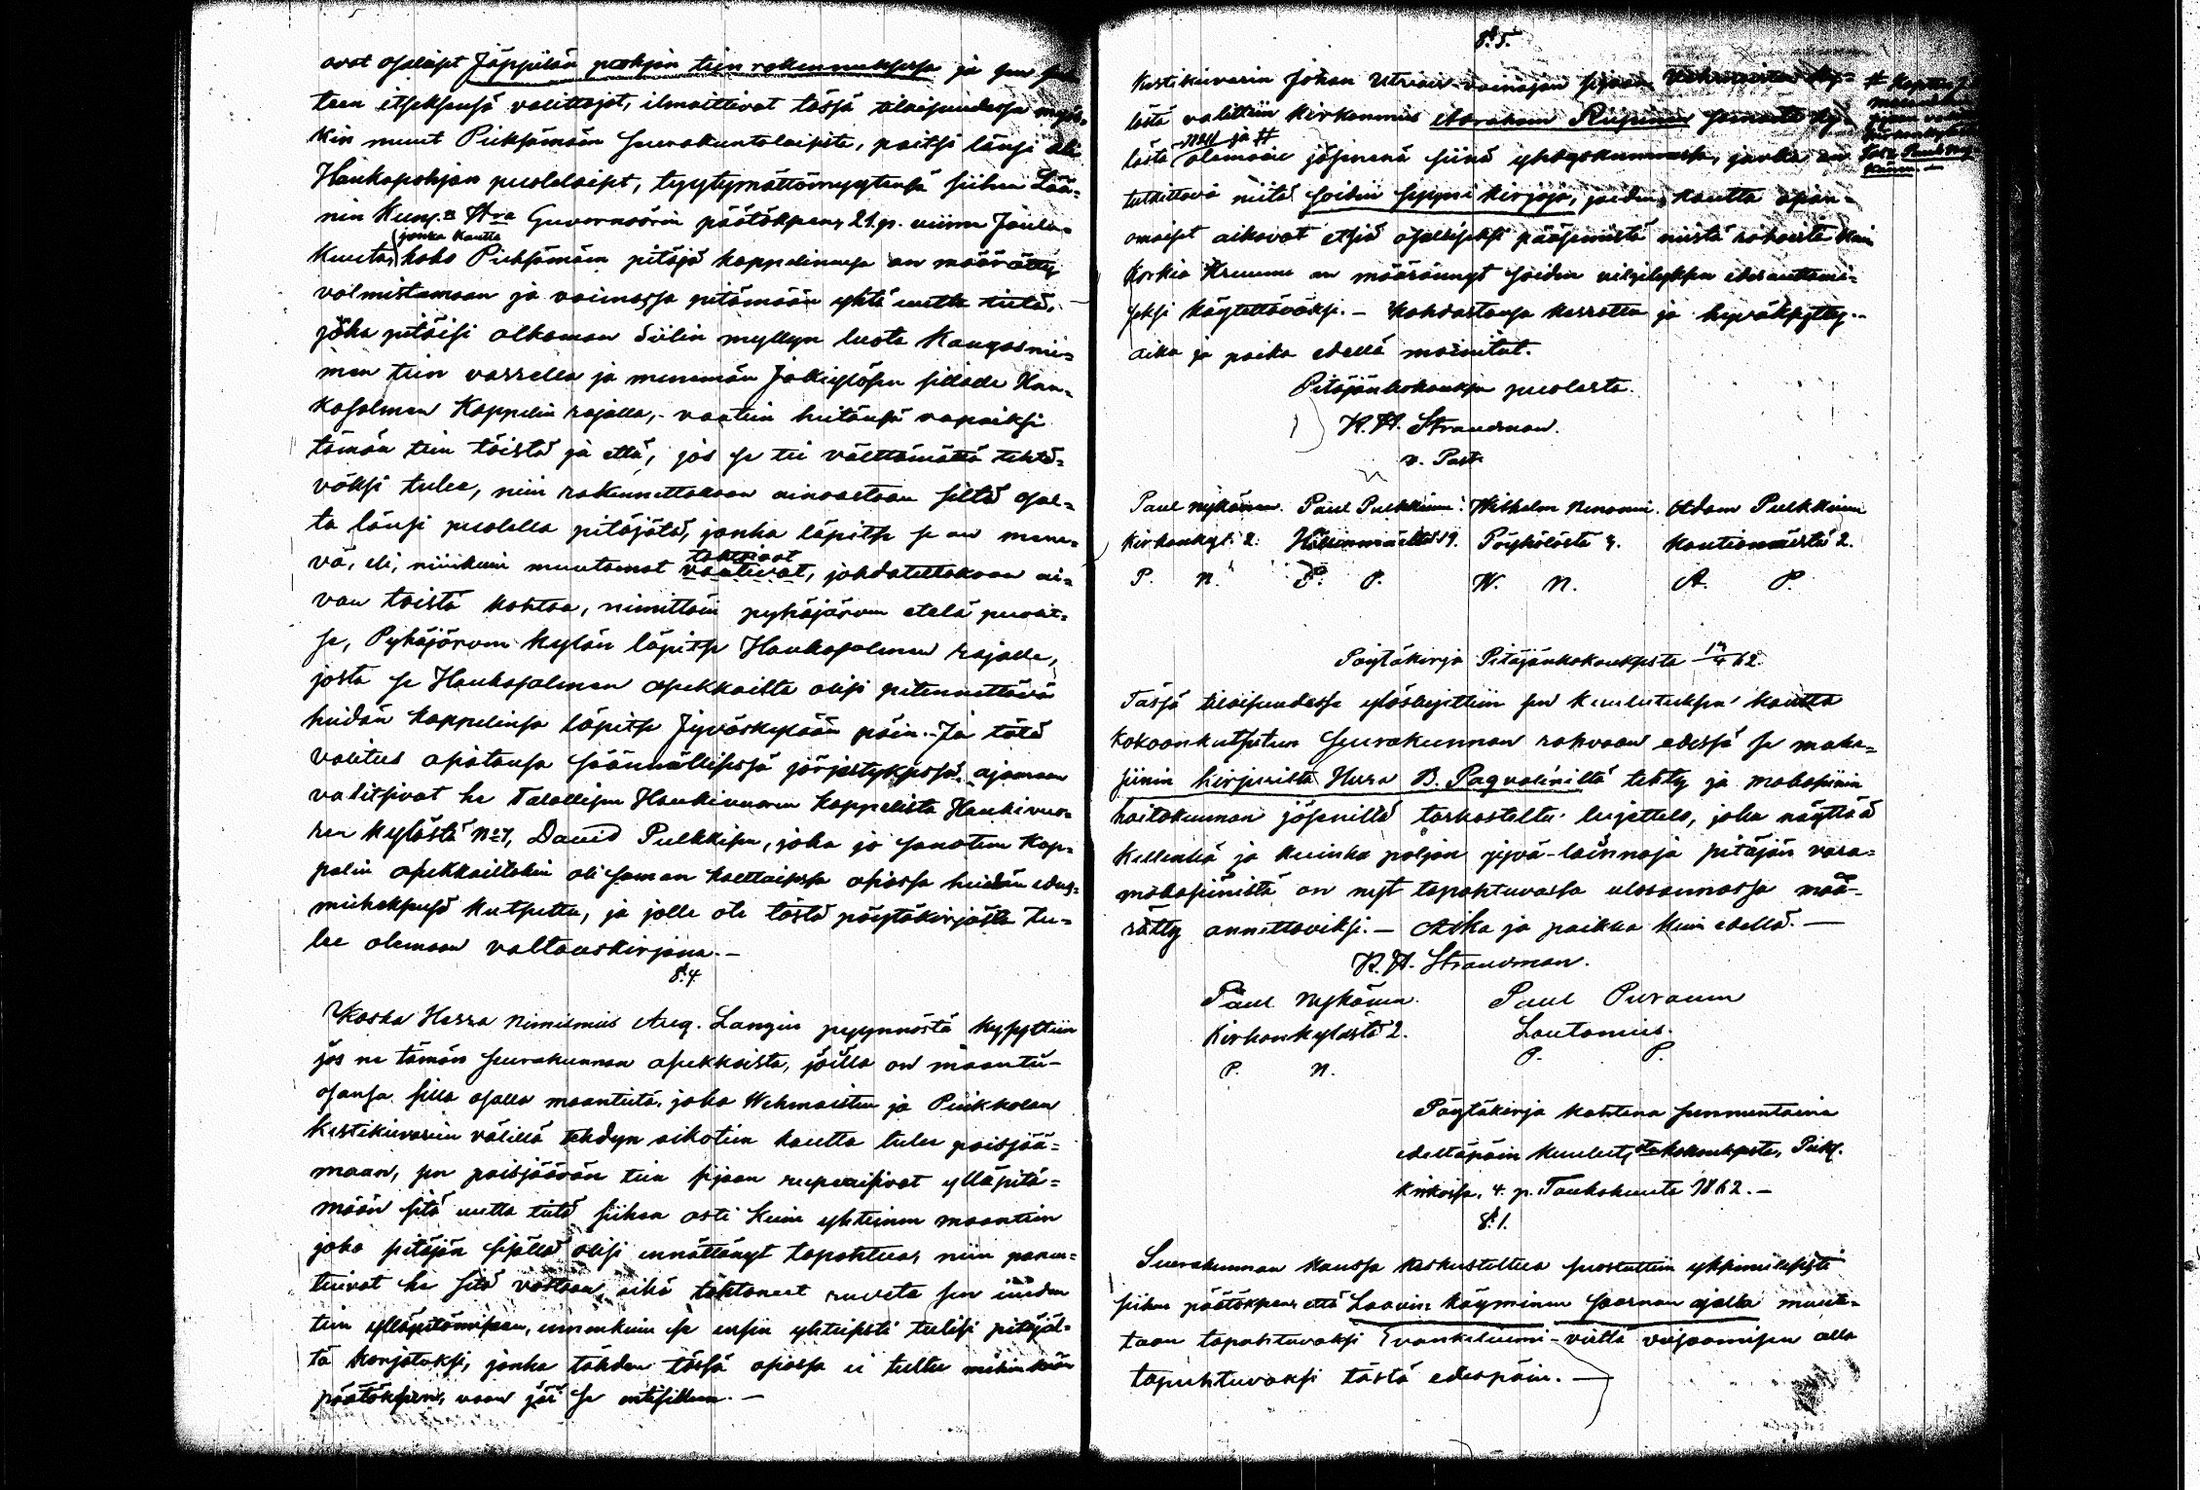 ovat osalliset Jäppilän pohjan tien rakennuksessa ja sen
teen itseksensä valittajat, ilmoittivat tässä tilaisuudessa myös-
kin muut Pieksämän seurakuntalaisista, paitsi länsi
Haukapohjan puolelaiset, tyytymättömyytensä siihen Lää-
nin Kuv. Hra Guvernöörin päätökseen, 21. p. viime Joulu-
jonka kautta
kuuta, koko Pieksämän pitäjä kappelinensa on määrätty
valmistamaan ja voimassa pitämään yhtä uutta tietä,
joka pitäisi alkaman Siilin myllyn luota Kangasnie-
men tien varrella ja menemän sillalle Han-
kasalmen Kappelin rajalla, - vaatien heitänsä vapaiksi
tämän tien töistä ja että, jos se tie välttämättä tehtä-
väksi tulee, niin rakennettakoon ainoastaan siltä osal-
ta länsi puolella pitäjätä, jonka läpitse se on mene-
vä, eli, niinkuin muutamat vaativat, johdatettakoon ai-
tahtoivat
van toista kohtaa, nimittäin pyhäjärven etelä puolit-
se, Pyhäjärven kylän läpitse Hankasalmen rajalle,
josta se Hankasalmen asukkailta olisi pitennettävä
heidän kappelinsa läpitse Jyväskylään päin. Ja tätä
valitus asiatansa säännöllisessä järjestyksessä ajamaan
valitsivat he Talollisen Haukivuoren kappelista Haukivuo-
ren kylästä No 1, David Pulkkisen, joka jo sanotun Kap-
palin asukkailtakin oli saman laittaisessa asiassa heidän edus-
miheksensä kutsuttu, ja jolle ote tästä pöytäkirjasta tu-
lee olemaan valtauskirjana. -
§ 4.
Koska Herra Nimismies Aug. Langin pyynnöstä kysyttiin
jos ne tämän seurakunnan asukkaista, joilla on maantie-
osansa sillä osalla maantietä, joka Wehmaisten ja Pieikkolan
Kestikievarien välillä tehdyn aikotien kautta tulee poisjää-
maan, sen poisjäävän tien sijaan rupeaisivat ylläpitä-
mään sitä uutta tietä siihen asti kuin yhteinen maantien
jako pitäjän sisällä olisi ennättänyt tapahtua, niin panu-
tuivat he sitä vastaan, eikä tahtoneet ruveta sen uuden
tien ylläpitämiseen, ennenkuin se ensin yhteisesti tulisi pitäjäl-
tä korjatuksi, jonka tähden tässä asiassa ei tultu mihinkään
päätökseen, vaan jäi se entisilleen. -
§ 5.
Kestikievarin Johan Utriais-vainajan sijaan Vehmaisten ky-
lästä valittiin kirkonmies Abraham Riipinen
lästä olemaan jäsenenä siinä yhtyskunnassa, jonka on
tutkittava niitä soidin syynikirjoja, joiden kautta asian-
omaiset aikovat etsiä osallisiksi pääsemistä niistä rahoista kuin
korkia Kruunu on määrännyt soiden viljelyksen edesauttami-
seksi käytettäväksi. - Kahdastansa kerrottu ja hyväksytty. -
aika ja paikka edellä mainitut.
Pitäjänkokouksen puolesta.
K. H. Strandman.
v. Past.
Paul Nykänen. Paul Pulkkinen. Wilhelm Nenonin. Adam Pulkkinen
Kirkonkyl. 2. 19. Pöyhölästä 4. Kautiomäestä 2.
P. N. P. P. W. N. A. P.
Pöytäkirja Pitäjänkokouksesta 62.
Tässä tilaisuudessa ylösluettiin sen kuulutuksen kautta
kokoonkutsutun seurakunnan rahvaan edessä se maka-
siinin kirjurilta Herra B. Pagvalinilta tehty ja makasiinin
hoitokunnan jäseniltä tarkasteltu luettelo, joka näyttää
Kellenkä ja kuinka paljon jyvä-lainoja pitäjän vara-
makasiinista on nyt tapahtuvassa ulosannossa mää-
rätty annettaviksi. - Aika ja paikka kuin edellä. -
K. H. Strandman.
Paul Nykänen. Paul Puranen
Kirkonkylästä 2. Lautamies.
P. N. P. P.
Pöytäkirja kahtena sunnuntaina
edeltäpäin kuulutetusta kokouksesta, Pieks.
kirkossa, 4. p. Toukokuuta 1862. -
§ 1.
Seurakunnan kanssa keskusteltua suostuttiin yksimielisesti
siihen päätökseen, että Haavin käyminen saarnan ajalla muute-
taan tapahtuvaksi Evankeliumi-virttä veisaamisen alla
tapahtuvaksi tästä edespäin. -